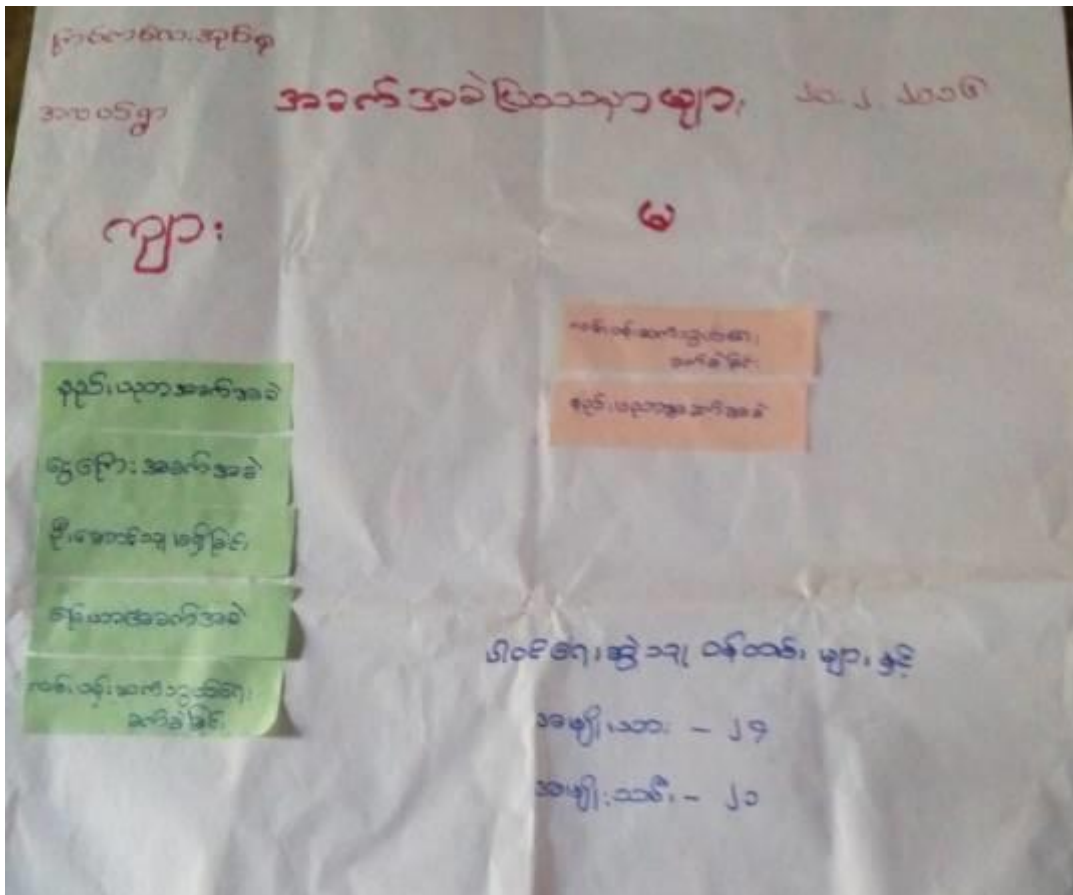 အခက်အခဲပြဿနာများ ၂၀.၂.၂၀၁၆
ကျား
မ
နည်းပညာအခက်အခဲ
ငွေကြေးအခက်အခဲ
ဦးဆောင်သူမရှိခြင်း
မြေယာအခက်အခဲ
လမ်းပန်းဆက်သွယ်ရေး
ခက်ခဲခြင်း
လမ်းပန်းဆက်သွယ်ရေး
ခက်ခဲခြင်း
နည်းပညာအခက်အခဲ
ပါဝင်ဆွေးနွေးသူ ဝန်ထမ်းများနှင့်
အမျိုးသား - ၂၄
အမျိုးသမီး - ၂၁